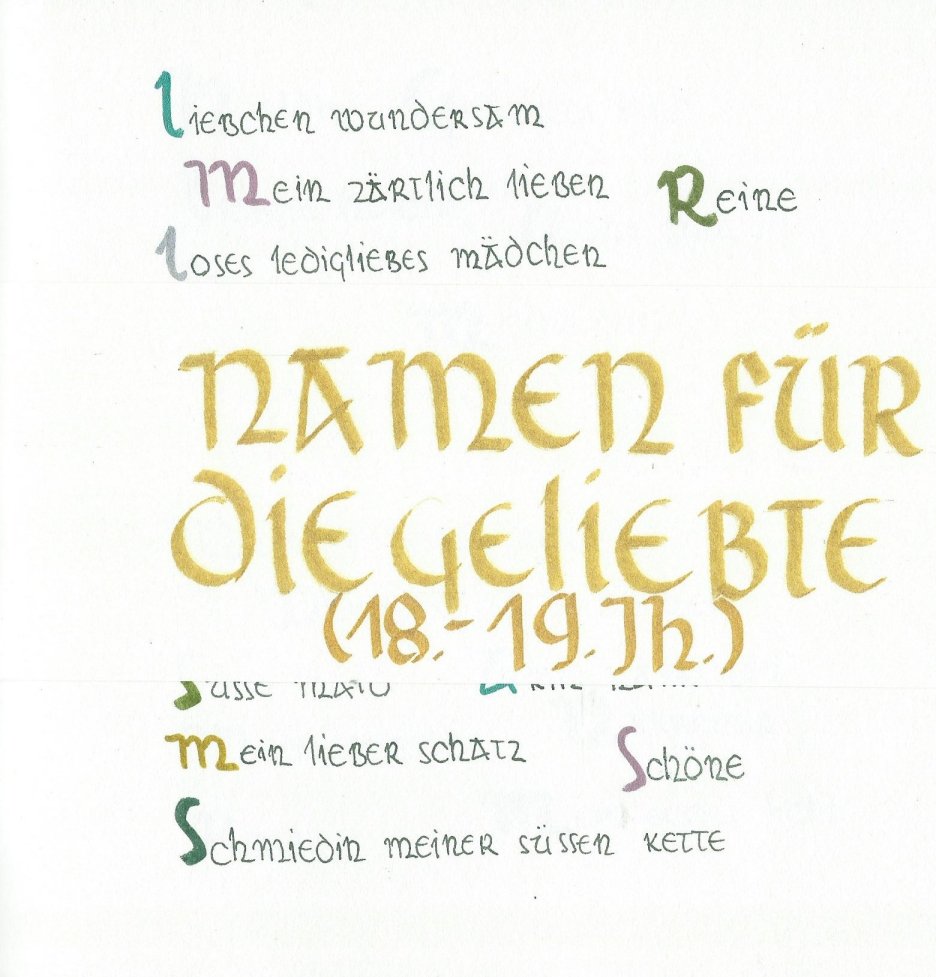 Liebchen wundersam
Mein zärtlich lieben
Reine
Loses ledigliebes mädchen
NAMEN FÜR
DIE GELIEBTE
(18.-19.Jh.)
Süsse
Mein lieber schatz
Schöne
Schmiedin meiner süssen kette